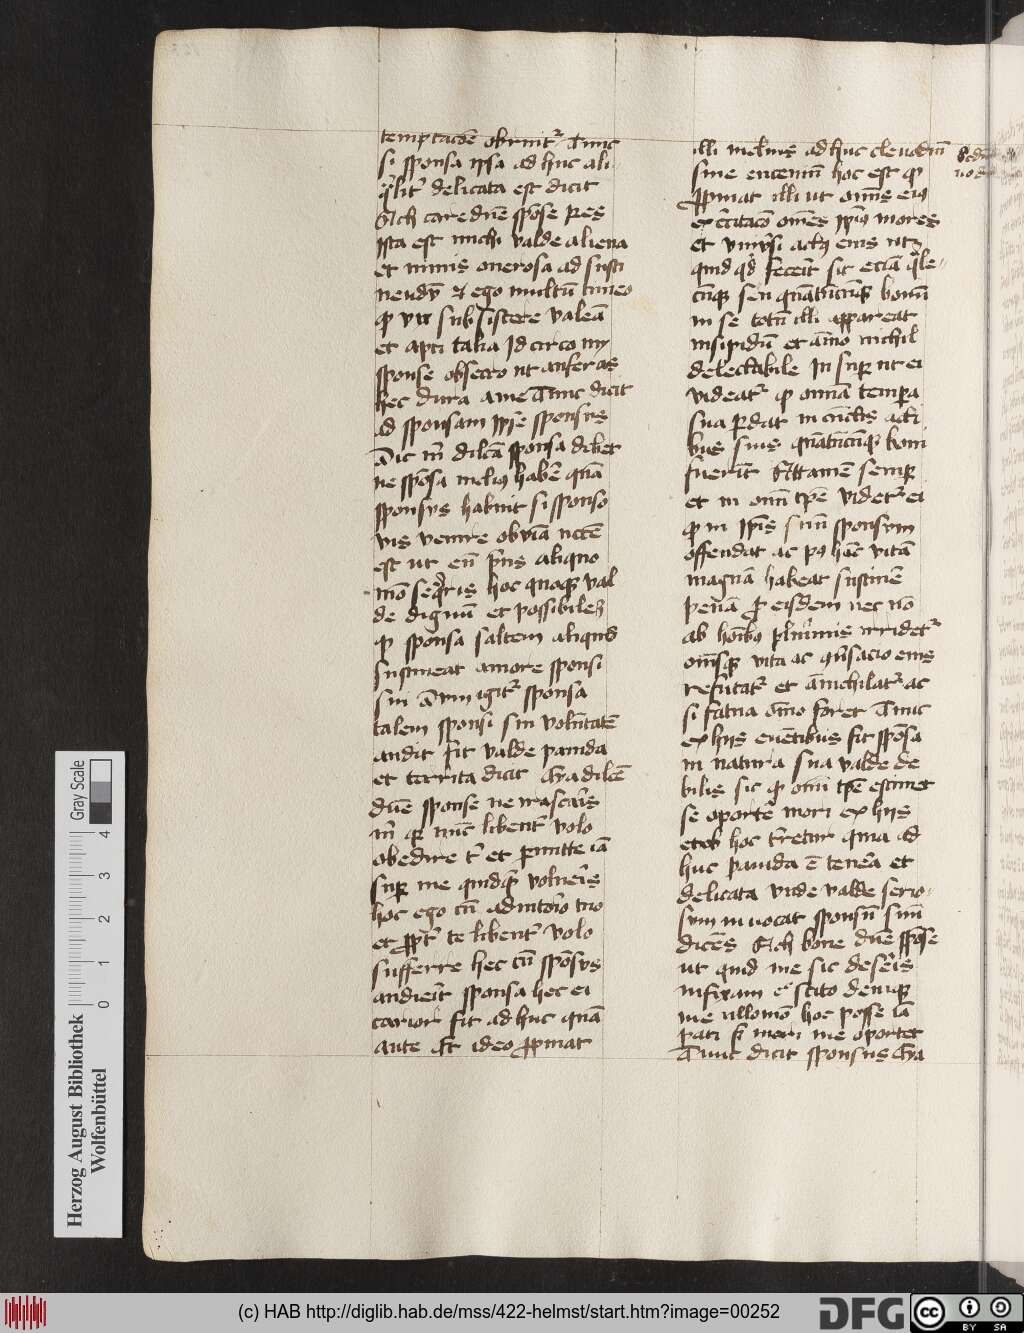 temptacōe obruit᷑ Tunc
si sponsa ipsa ad huc ali
q̄lit᷑ delicata est dicit
Ach care dn̄e spōse Res
ista est michi valde aliena
et nimis onerosa ad susti
nendū et ego multū timeo
ꝙ vix subsistere valeā
et apti talia Idcirco mi
sponse obsecro ut auferas
hec dura a me Tunc dicit
ad sponsam ip̄e sponsus
Dic m̄ dilc̄a sponsa debet
ne spōsa melius habē quā
sponsus habuit si sponso
vis venire obviā necē
est ut eū p̄us aliquo
mō seq̄ris hoc quoqꝫ val
de dignū et possibile
ꝙ sponsa saltem aliquid
sustineat amore sponsi
sui Cum igit᷑ sponsa
talem sponsi sui volūtatē
audit fit valde pavida
et territa dicit Eya dilc̄e
dn̄e sponse ne irascar̄is
m̄ qꝫ nūc libent᷑ volo
obedire t᷑ et permitte iā
sup̄ me quidq̄d volueris
hoc ego cū adiutorio tuo
et ꝓpt᷑ te libent᷑ volo
sufferre hec cū spōsus
audierit sponsa hec ei
carior fit ad huc quā
ante Et ideo ꝓpinat
illi melius ad huc clevodiū
sine encenium hoc est ꝙ
ꝓpinat illi ut om̄s eius
exc̄itacō om̄es ip̄ius mores
et univ̄si actus eius ut
quid qd̄ fecerit sit eciā q̄le
cūqꝫ seu quātūcūqꝫ bonū
in se totū illi appareat
insipidū et ām̄o nichil
delectabile In sup̄ ut ei
videat᷑ ꝙ omnia tempora
sua perdat in cūctis acti
bus suis quātūcūqꝫ boni
fuerīt Attamē semp̄
et in om̄i tp̄e videt᷑ ei
ꝙ in ip̄is suū sponsum
offendat ac pꝰ hāc vitā
magnā habeat sustinē
penā ꝓ eisdem nec nō
ab hoībꝰ plurimis irridet᷑
om̄isqꝫ vita ac ꝯv̄sacio eius
refutat᷑ et ānichilat᷑ ac
si fatua om̄o foret Tunc
ex hys evētibus fit spōsa
in natura sua valde de
bilis sic ꝙ om̄i tp̄e estimet
se oportē mori ex hys
hoc tūretur quia ad
huc pavida ē tenera et
delicata vnde valde serio
sum invocat sponsū suū
dicēs Ach bone dn̄e spōse
ut quid me sic deseris
infirmam scito deniqꝫ
me nullomō hoc posse iā
pati sꝫ mori me oportet
Tunc dicit sponsus Eya
Herzog August Bibliothek
Wolfenbüttel
Gray Scale
0 1 2 3 4
(c) HAB http://diglib.hab.de/mss/422-helmst/start.htm?image=00252
DFG
cc BY SA